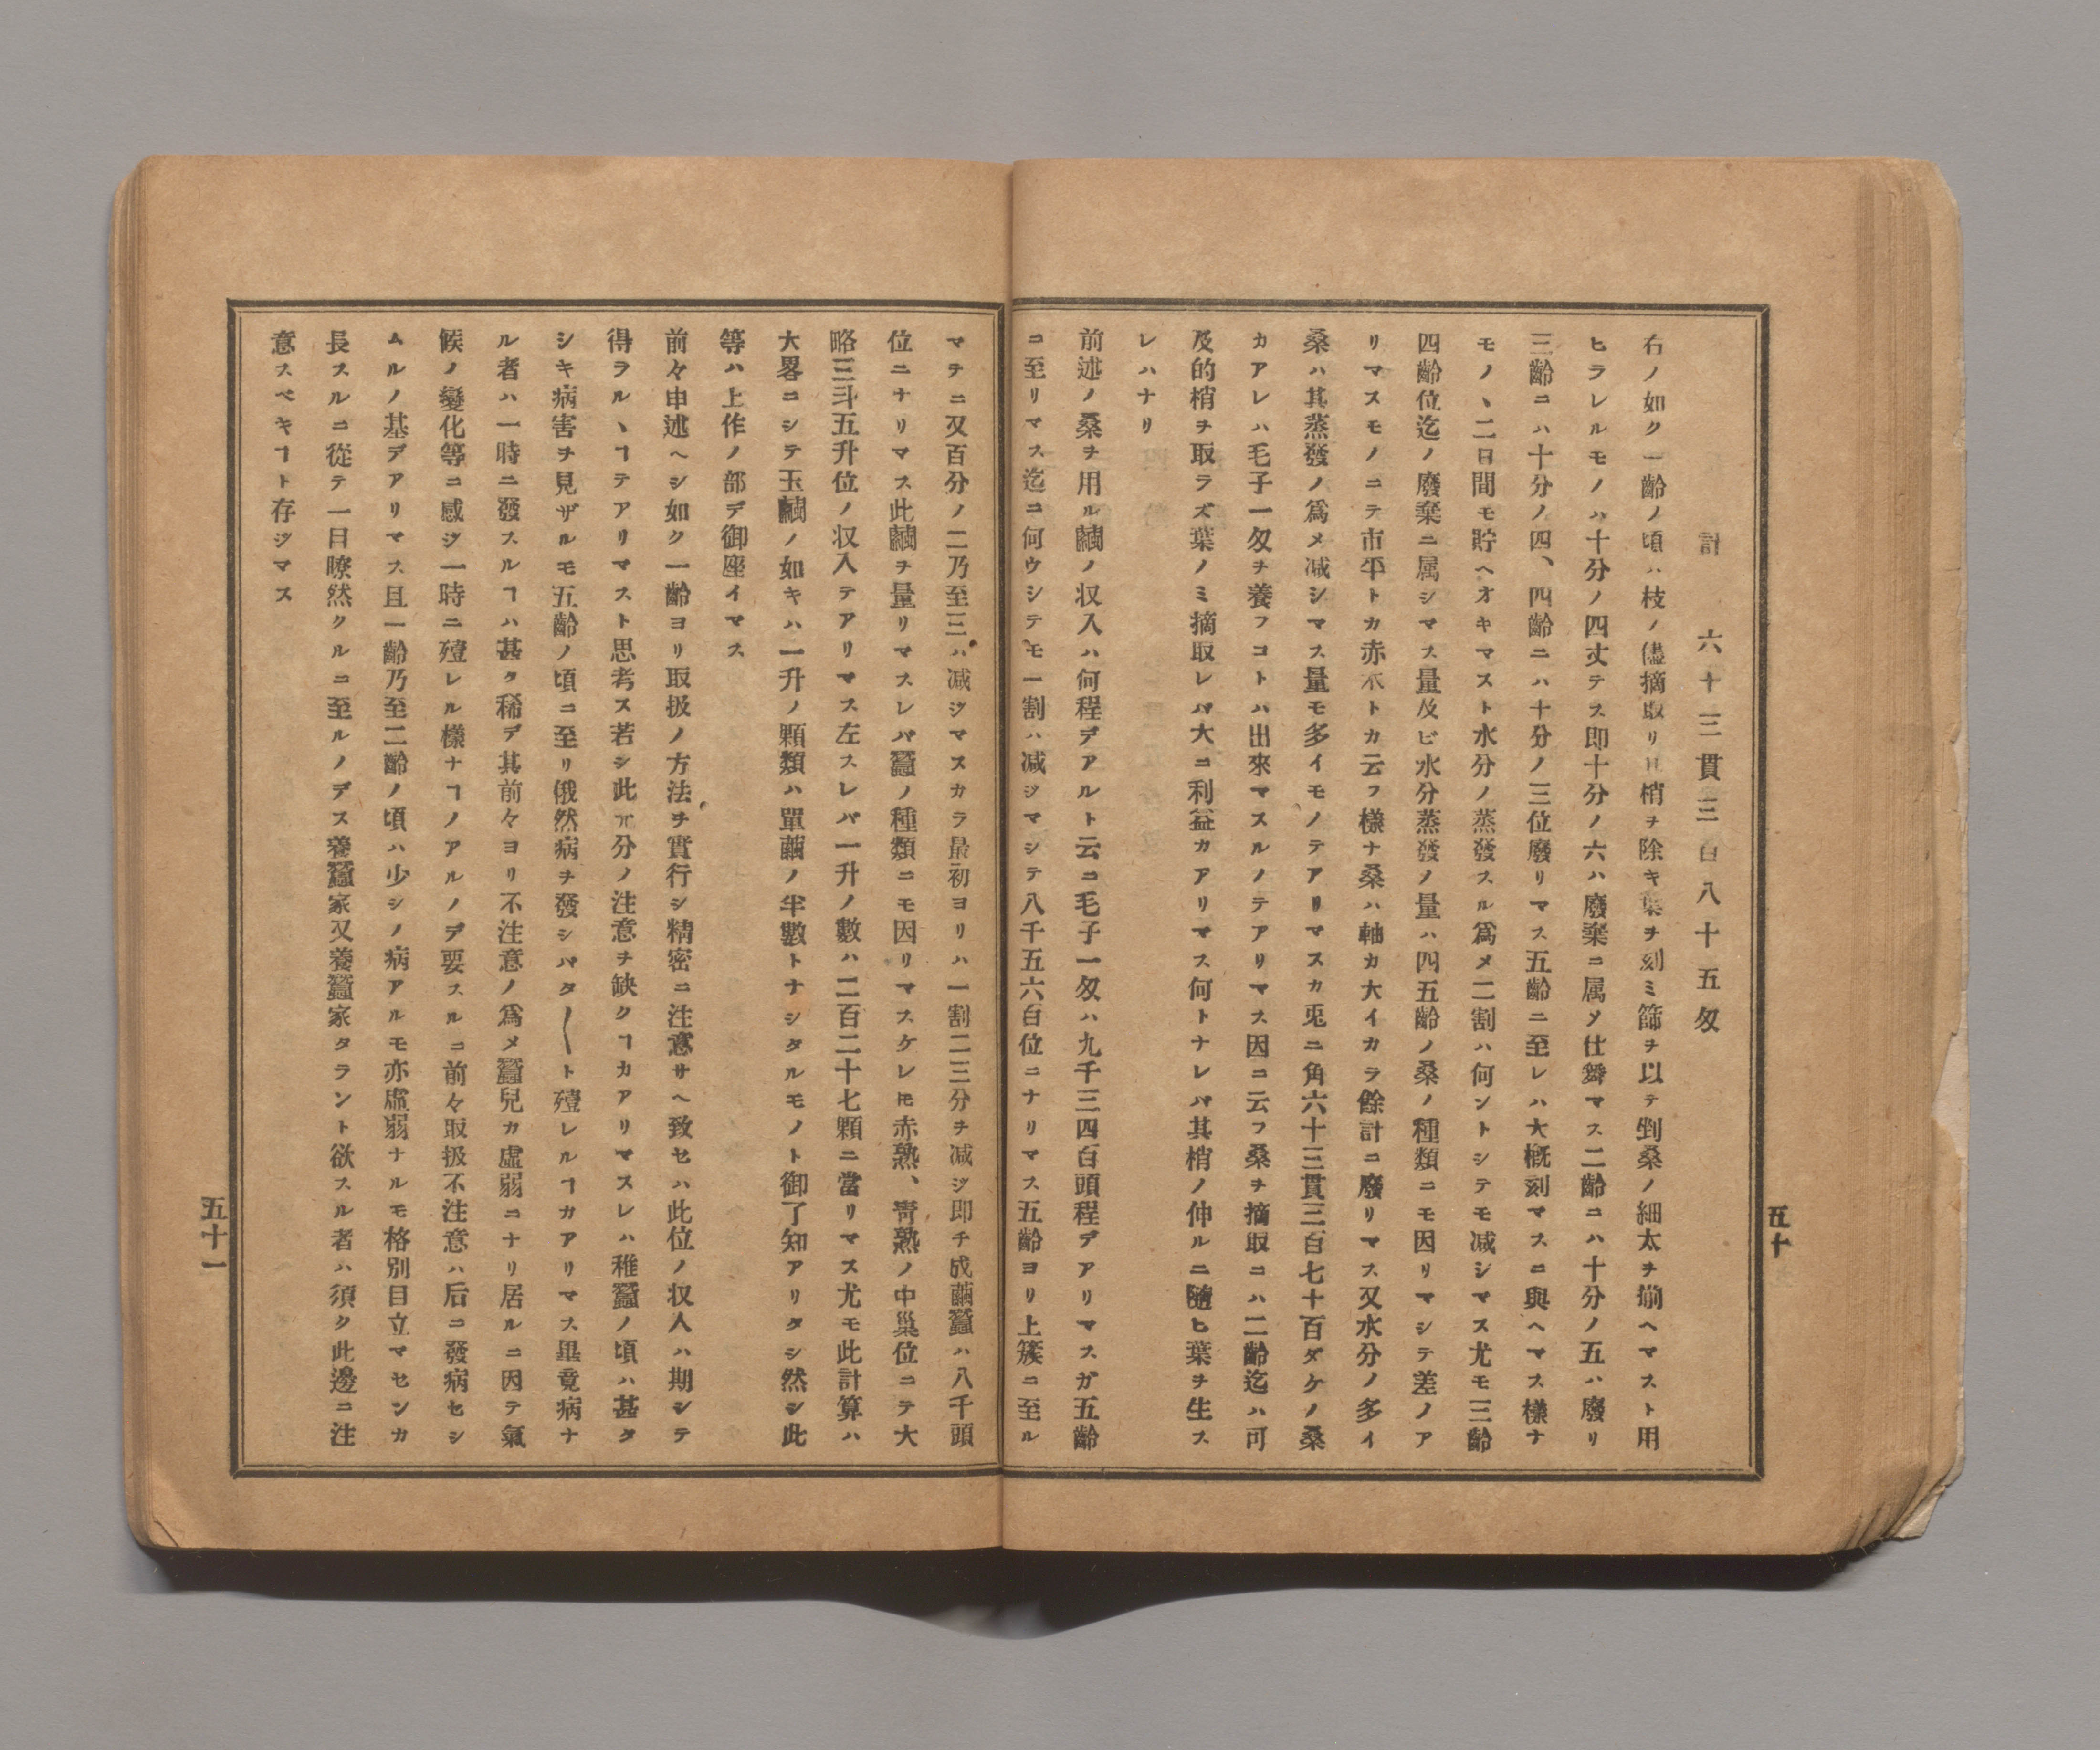 計　六十三貫三百八十五匁
右ノ如ク一齡ノ頃ハ枝ノ儘摘取リ且梢ヲ除キ葉ヲ刻ミ篩ヲ以テ剉桑ノ細太ヲ揃ヘマスト用
ヒラレルモノハ十分ノ四丈テス即十分ノ六ハ廢棄ニ属ソ仕舞マス二齡ニハ十分ノ五ハ廢リ
三齡ニハ十分ノ四、四齡ニハ十分ノ三位廢リマス五齡ニ至レハ大概刻マスニ與ヘマス樣ナ
モノヽ二日間モ貯ヘオキマスト水分ノ蒸發スル爲メ二割ハ何ントシテモ减シマス尤モ三齡
四齡位迄ノ廢棄ニ属シマス量及ビ水分蒸發ノ量ハ四五齡ノ桑ノ種類ニモ因リマシテ差ノア
リマスモノニテ市平トカ赤木トカ云フ樣ナ桑ハ軸カ大イカラ餘計ニ廢リマス又水分ノ多イ
桑ハ其蒸發ノ爲メ减シマス量モ多イモノテアリマスカ兎ニ角六十三貫三百七十百ダケノ桑
カアレハ毛子一匁ヲ養フコトハ出來マスルノテアリマス因ニ云フ桑ヲ摘取ニハ二齡迄ハ可
及的梢ヲ取ラズ葉ノミ摘取レバ大ニ利益カアリマス何トナレバ其梢ノ伸ルニ隨ヒ葉ヲ生ス
レハナリ
前述ノ桑ヲ用ル繭ノ収入ハ何程デアルト云ニ毛子一匁ハ九千三四百頭程デアリマスガ五齡
ニ至リマス迄ニ何ウシテモ一割ハ减ジマシテ八千五六百位ニナリマス五齡ヨリ上簇ニ至ル
五十
マテニ又百分ノ二乃至三ハ减ジマスカラ最初ヨリハ一割二三分ヲ减ジ即チ成繭蠶ハ八千頭
位ニナリマス此繭ヲ量リマスレバ蠶ノ種類ニモ因リマスケレ𪜈赤熟、靑熟ノ中巢位ニテ大
略三斗五升位ノ収入テアリマス左スレバ一升ノ數ハ二百二十七顆ニ當リマス尤モ此計算ハ
大畧ニシテ玉繭ノ如キハ一升ノ顆類ハ單繭ノ半數トナシタルモノト御了知アリタシ然シ此
等ハ上作ノ部デ御座イマス
前々申述ヘシ如ク一齡ヨリ取扱ノ方法ヲ實行シ精密ニ注意サヘ致セハ此位ノ収入ハ期シテ
得ラルヽヿテアリマスト思考ス若シ此冗分ノ注意ヲ缺クヿカアリマスレハ稚蠶ノ頃ハ甚タ
シキ病害ヲ見ザルモ五齡ノ頃ニ至リ俄然病ヲ發シバタ〱ト殪レルヿカアリマス畢竟病ナ
ル者ハ一時ニ發スルヿハ甚タ稀デ其前々ヨリ不注意ノ爲メ蠶兒カ虛弱ニナリ居ルニ因テ氣
候ノ變化等ニ感ジ一時ニ殪レル樣ナヿノアルノデ要スルニ前々取扱不注意ハ后ニ發病セシ
ムルノ基デアリマス且一齡乃至二齡ノ頃ハ少シノ病アルモ亦虛弱ナルモ格別目立マセンカ
長スルニ從テ一日瞭然クルニ至ルノデス養蠶家又養蠶家タラント欲スル者ハ須ク此邊ニ注
意スベキヿト存ジマス
五十一